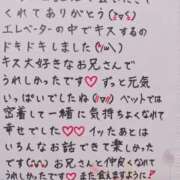 くれてありがとう(≧▽≦)
エレベーターの中でキスするの
ドキドキしました(*/ω＼)
キス大好きなお兄さんで
うれしかったです♡ずっと元気
いっぱいでしたね(*≧▽≦) ベットでは
密着して一緒に気持ちよくなれて
幸せでした♡♡イッたあとは
いろんなお話できて楽しかった
です(≧▽≦) お兄さんと仲良くなれて
うれしかったです♡また会えますように！